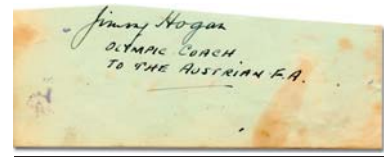 Jimmy Hogan
OLYMPIC COACH
TO THE AUSTRIAN F.A.